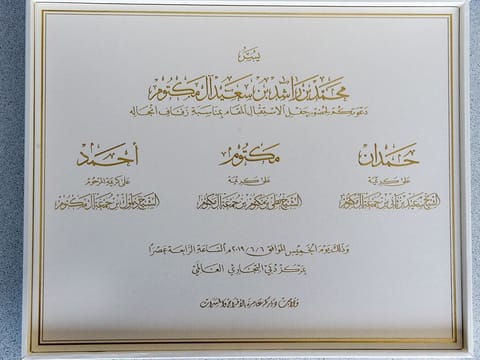 يسر
محمد بن راشد بن سعيد آل مكتوم
دعوتكم لحضور حفل الاستقبال المقام بمناسبة زفاف أنجاله
حمدان
على كريمة
الشيخ سعيد بن ثاني بن جمعة آل مكتوم
مكتوم
على كريمة
الشيخ بطي بن مكتوم بن جمعة آل مكتوم
أحمد
على كريمة المرحوم
الشيخ دلموك بن جمعة آل مكتوم
وذلك يوم الخميس الموافق ٢٠١٩/٦/٦م الساعة الرابعة عصرا
بمركز دبي التجاري العالمي
ودامت دياركم عامرة بالأفراح والمسرات